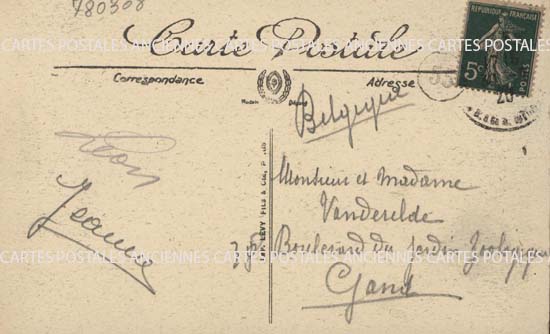 780308
Carte Postale
Correspondance
Adresse
RÉPUBLIQUE FRANÇAISE
5c
POSTES
Modèle Déposé
Belgique
Léon
Jeanne
Monsieur et Madame
Vanderelde
Boulevard du Jardin Zoologique
Gand
LÉVY FILS & Cie, P
ANCIENNES CARTES POSTALES ANCIENNES CARTES POSTALES
CARTES POSTALES ANCIENNES CARTES POSTALES ANCIENNES